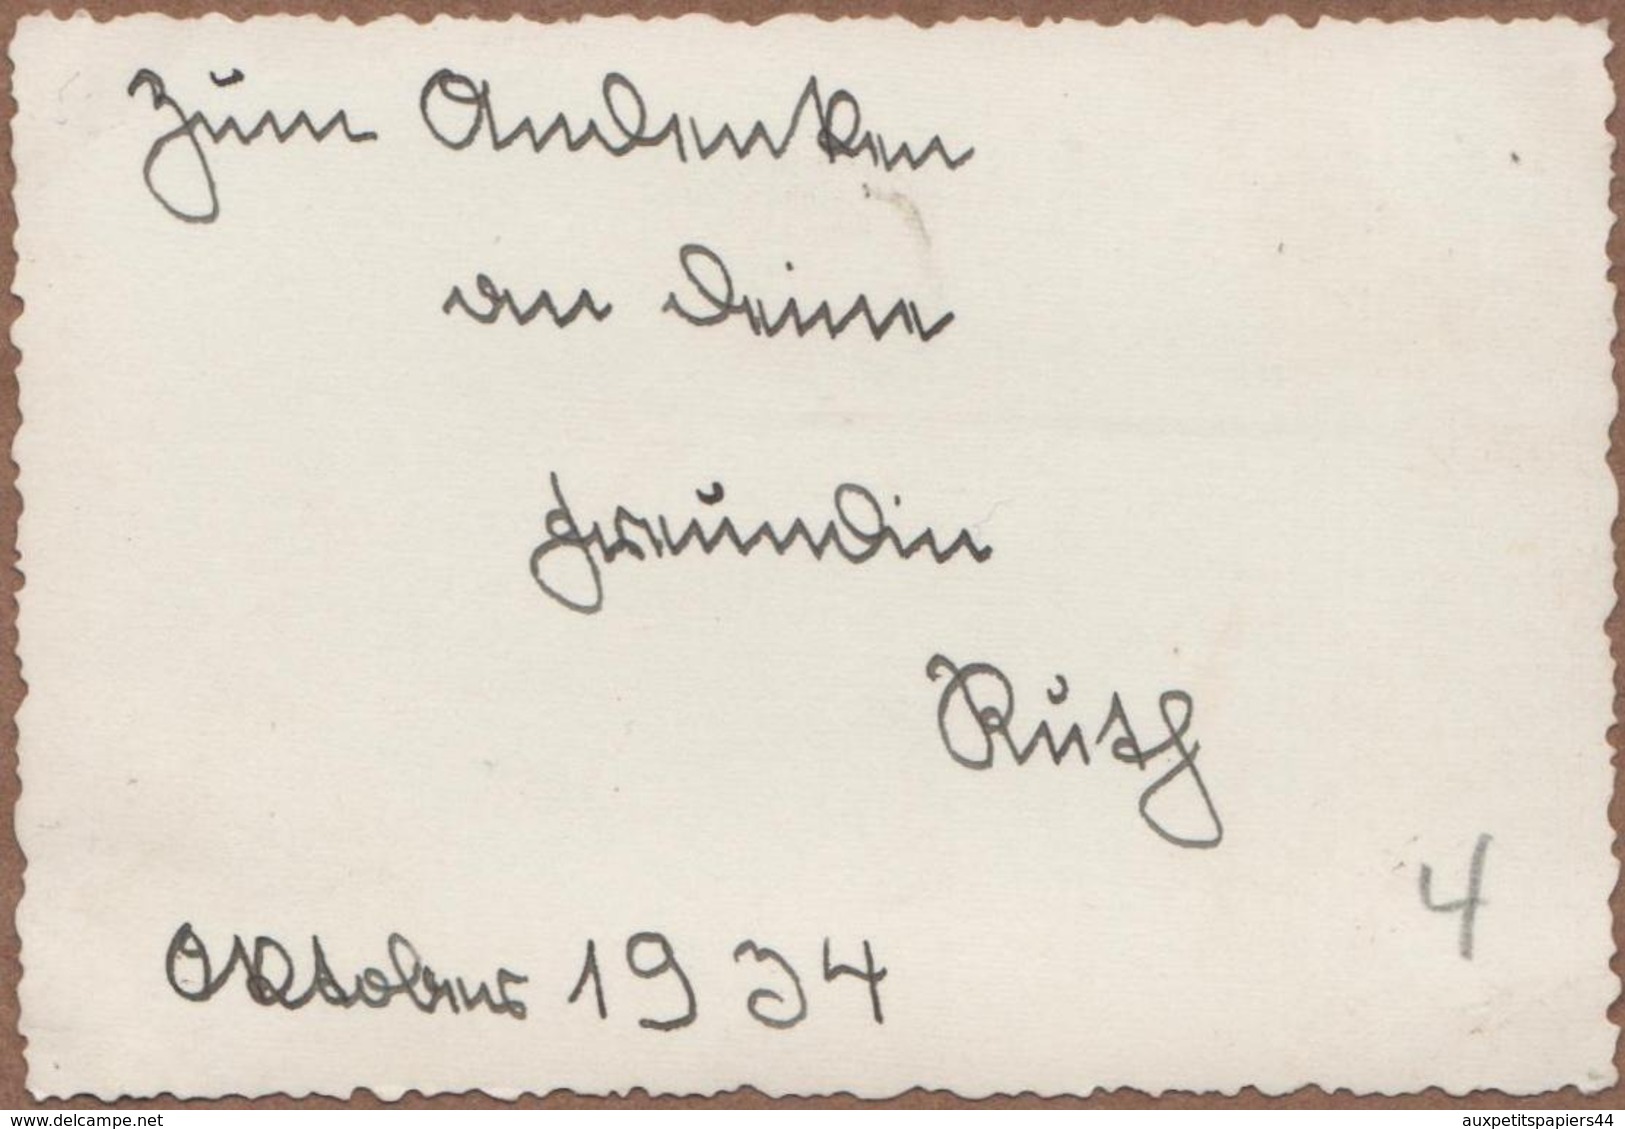 Zum Andenken
an Deine
Freundin
Ruth
4
Oktober 1934
delcampe.net
auxpetitspapiers44